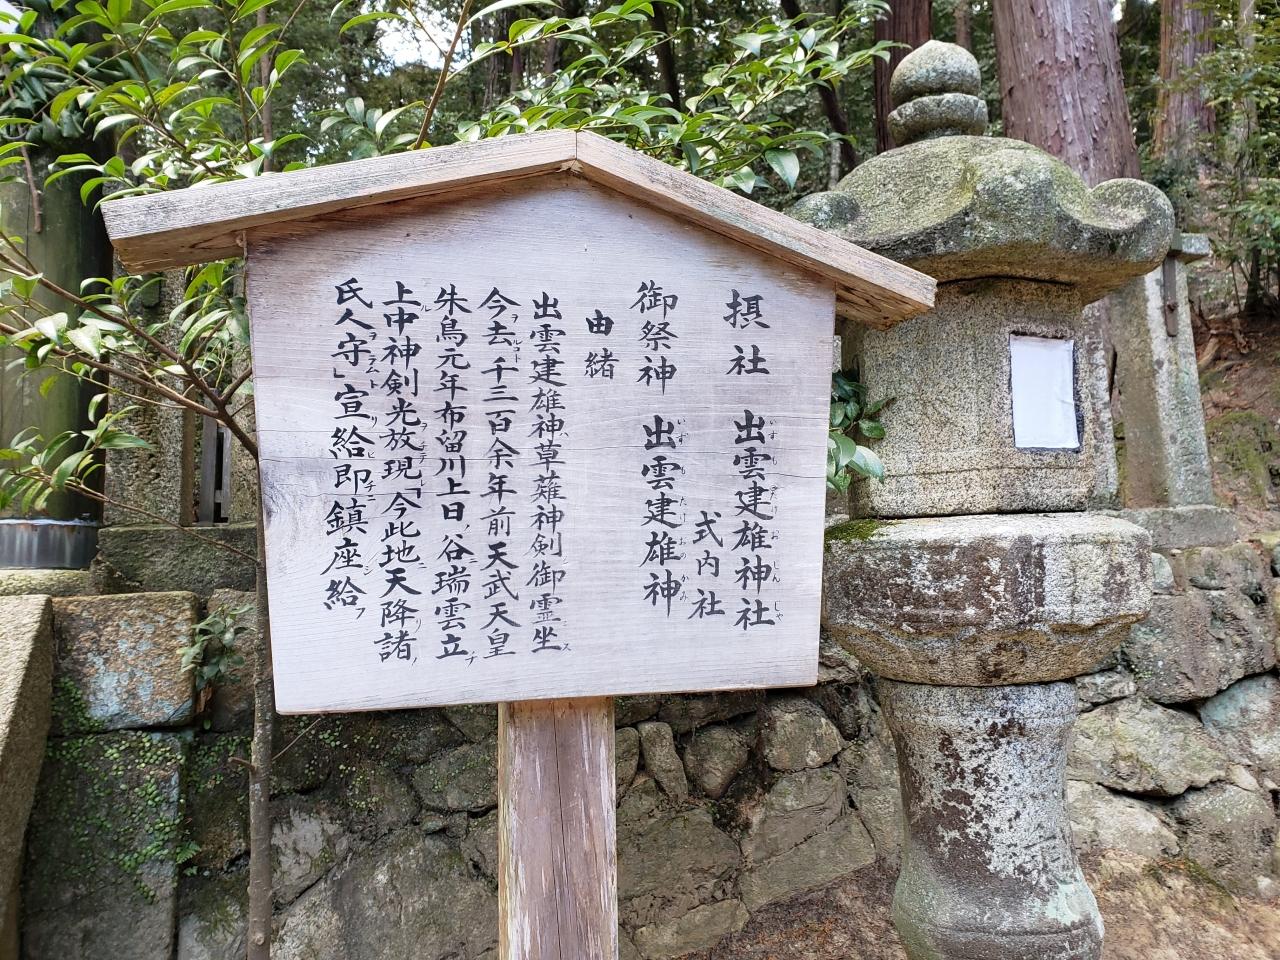 摂社 出雲建雄神社
式内社
御祭神 出雲建雄神
由緒
出雲建雄神ハ草薙神剣御霊ニ坐ス
今ヲ去ルコト千三百余年前天武天皇
朱鳥元年布留川上日ノ谷ニ瑞雲立チ
上ル中神剣光ヲ放チテ現レ「今此地ニ天降リ諸ノ
氏人ヲ守ラムト」宣リ給ヒ即チニ鎮座シ給フ